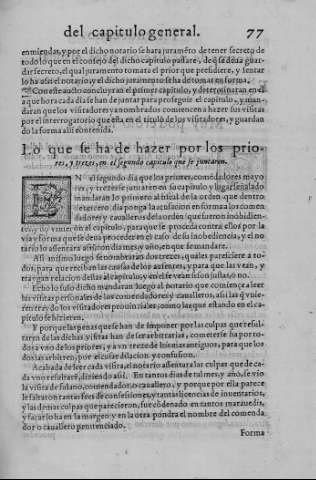 del capitulo general. 77
enmiendas, y por el dicho notario se hara juramẽto de tener secreto de
todo lo que en el consejo del dicho capitulo passare, de q̃ se deua guar-
dar secreto, el qual juramento tomara el prior que presidiere, y sentar
lo ha assi el notario, y el dicho juramento se ha de tomar en forma.
Con este aucto concluyran el primer capitulo, y determinaran en el
a que hora cada dia se han de juntar para proseguir el capitulo, y man-
daran que los visitadores ya nombrados comiencen a hazer sus visitas
por el interrogatorio que esta en el titulo de los visitadores, y guardan
do la forma alli contenida.
Lo que se ha de hazer por los prio-
res, y trezes, en el segundo capitulo que se juntaren.
EN el segundo dia que los priores, comẽdadores mayo
res, y trezes se juntaren en su capitulo y lugar señalado
mandaran lo primero al fiscal de la orden que dentro
de tercero dia ponga la acusacion en forma a los comen
dadores y caualleros de la ordẽ q̃ fueron inobidien-
tes en no venir en el capitulo, para que se proceda contra ellos por la
via y forma que se deua proceder en caso de su inobediencia, y el no
tario lo assentara assi con dia mes y año, en que se mandare.
Assi mismo luego se nombraran dos trezes, quales pareciere a to-
dos, para que reciban las causas de los ausentes, y para que las vean, y
hagan relacion dellas al capitulo, y en el se vea si son justas, o no.
Echo lo suso dicho mandaran luego al notario que comiençe a leer
las visitas personales de los comendadores y caualleros, assi las q̃ vinie
ren de los visitadores prouinciales, como las que estando en el ca-
pitulo se hizieren.
Y porque las penas que se han de imponer por las culpas que resul-
taren de las dichas visitas han de ser arbitrarias, cometerse ha por to-
dos a vno de los priores, y a vn treze de los mas antiguos, para que los
dos las arbitren, por escusar dilacion y confusion.
Acabada de leer cada visita, el notario assentara las culpas que de ca-
da vno resultare, diziendo assi. En tantos dias de tal mes, y año, se vio
la visita de fulano, comendador, o cauallero, y porque por ella parece
le faltaron tantas fees de confessiones, y tantas licencias de inuentarios,
y las demas culpas que parecieron, fue cõdenado en tantos marauedis,
y assentar lo ha en la margen y en la otra pondra el nombre del comenda
dor o cauallero penitenciado.
Forma